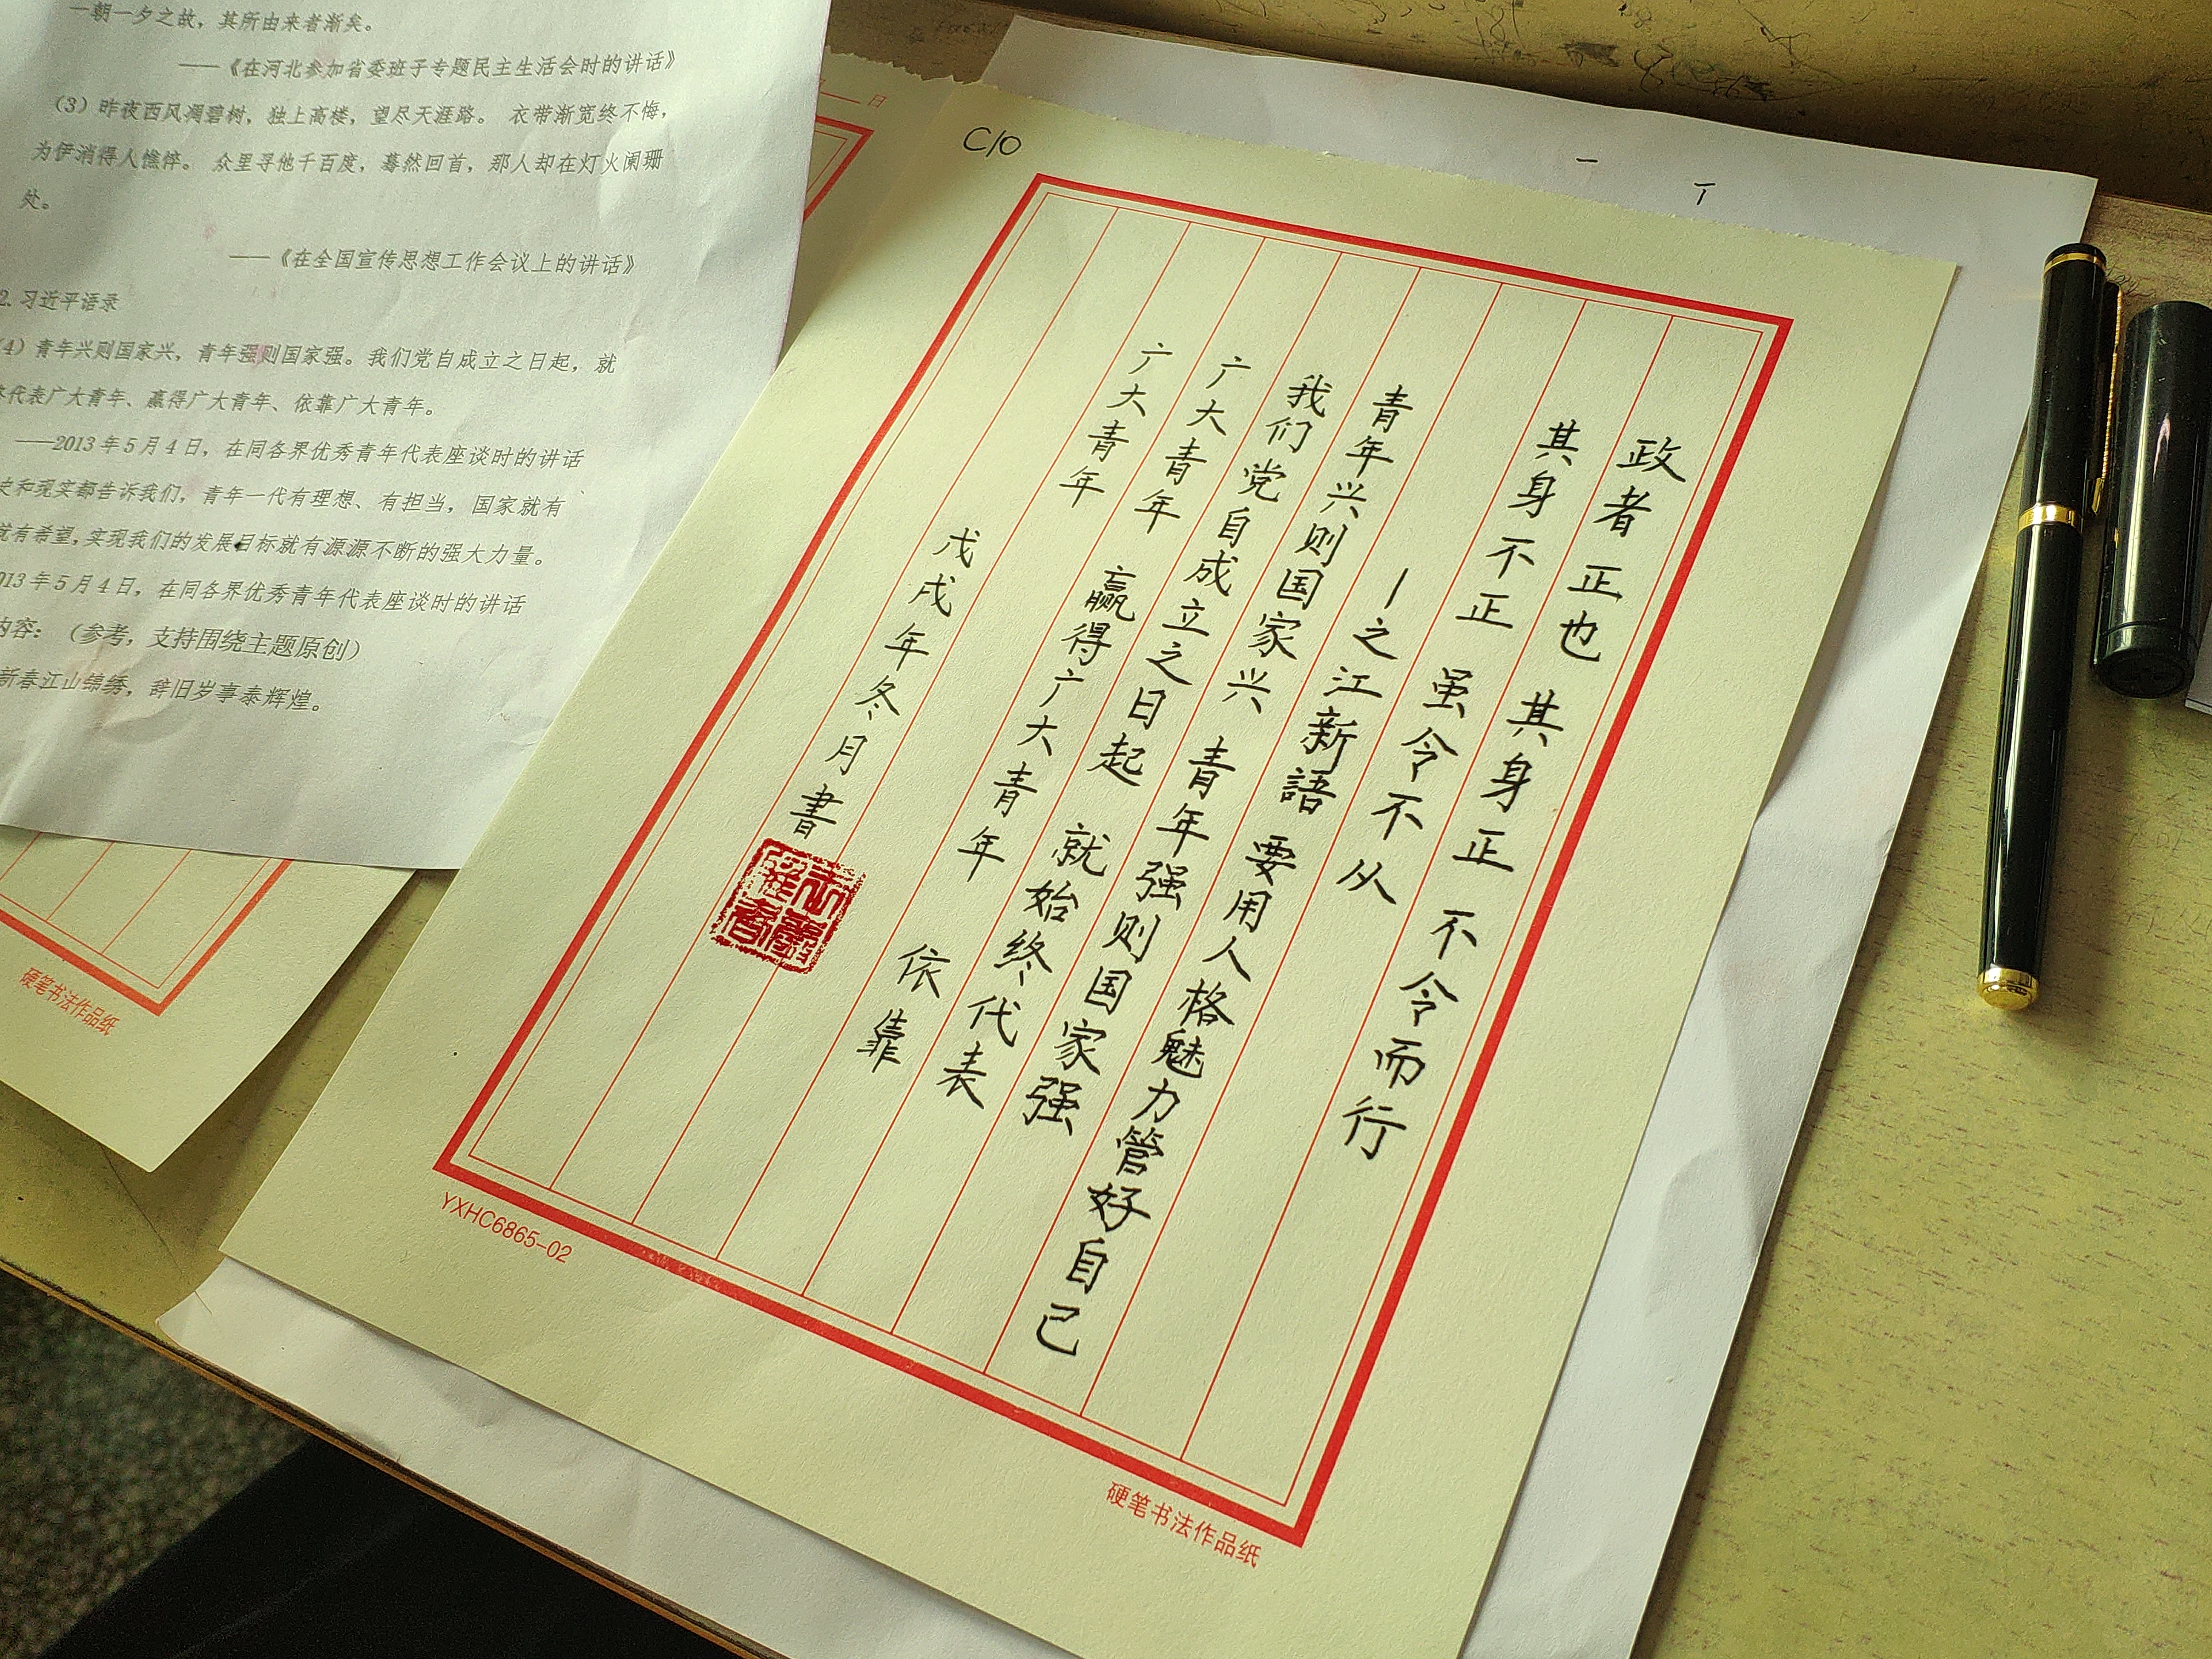 一朝一夕之故，其所由来者渐矣。
——《在河北参加省委班子专题民主生活会时的讲话》
（3）昨夜西风凋碧树，独上高楼，望尽天涯路。 衣带渐宽终不悔，
为伊消得人憔悴。 众里寻他千百度，蓦然回首，那人却在灯火阑珊
处。
——《在全国宣传思想工作会议上的讲话》
2. 习近平语录
4）青年兴则国家兴，青年强则国家强。我们党自成立之日起，就
代表广大青年、赢得广大青年、依靠广大青年。
——2013 年 5 月 4 日，在同各界优秀青年代表座谈时的讲话
史和现实都告诉我们，青年一代有理想、有担当，国家就有
就有希望，实现我们的发展目标就有源源不断的强大力量。
013 年 5 月 4 日，在同各界优秀青年代表座谈时的讲话
内容：（参考，支持围绕主题原创）
新春江山锦绣，辞旧岁事泰辉煌。
日
硬笔书法作品纸
C10
政者正也 其身正 不令而行
其身不正 虽令不从
—之江新語 要用人格魅力管好自己
青年兴则国家兴 青年强则国家强
我们党自成立之日起 就始终代表
广大青年 赢得广大青年 依靠
广大青年
戊戌年冬月書
YXHC6865-02
硬笔书法作品纸